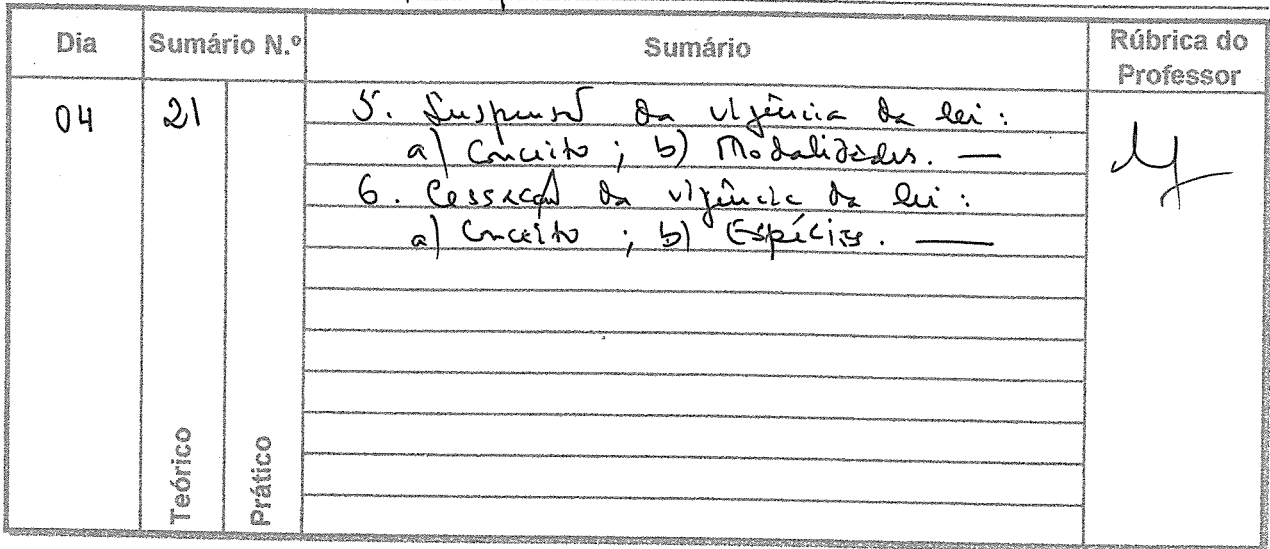 Dia Sumário N.º Sumário Rúbrica do Professor
04 21 5. Suspensão da vigência da lei:
a) Conceito; b) Modalidades. —
6. Cessação da vigência da lei:
a) Conceito; b) Espécies. —
Teórico
Prático